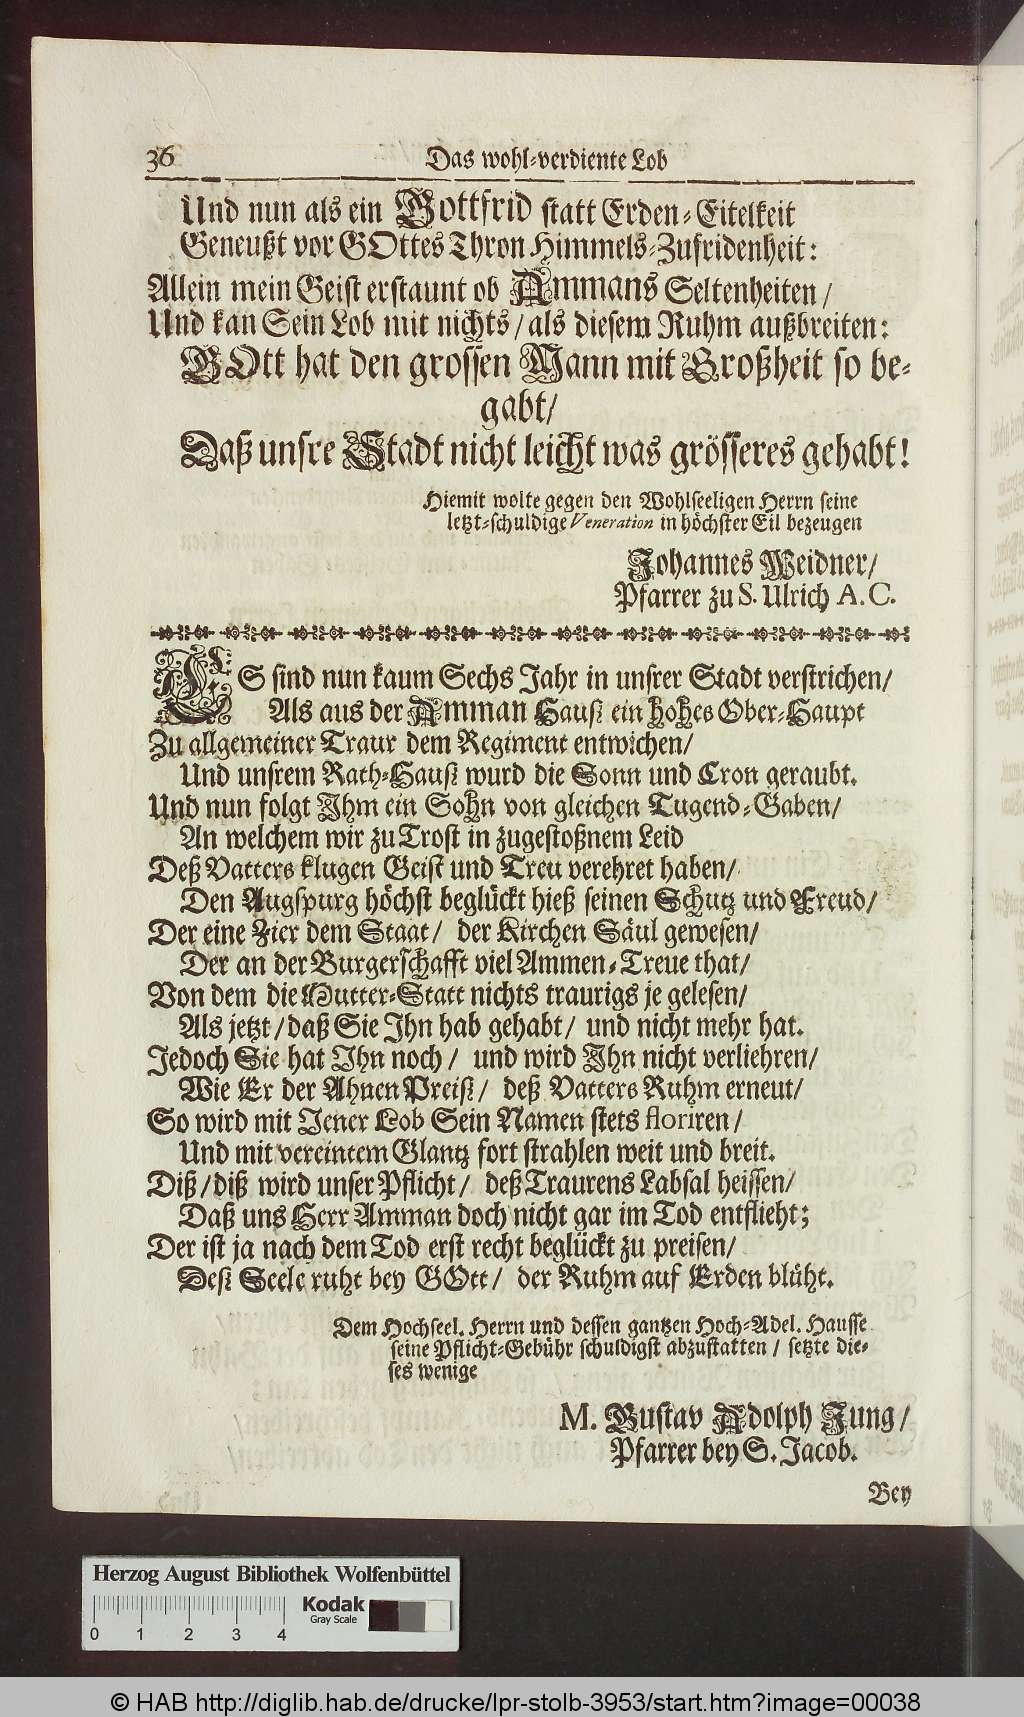 36 Das wohl-verdiente Lob
Und nun als ein Gottfrid statt Erden-Eitelkeit
Geneußt vor GOttes Thron Himmels-Zufridenheit:
Allein mein Geist erstaunt ob Ammans Seltenheiten /
Und kan Sein Lob mit nichts / als diesem Ruhm außbreiten:
GOtt hat den grossen Mann mit Großheit so be-
gabt /
Daß unsre Stadt nicht leicht was grösseres gehabt!
Hiemit wolte gegen den Wohlseeligen Herrn seine
letzt-schuldige Veneration in höchster Eil bezeugen
Johannes Weidner /
Pfarrer zu S. Ulrich A. C.
ES sind nun kaum Sechs Jahr in unsrer Stadt verstrichen /
Als aus der Amman Hauß ein hohes Ober-Haupt
Zu allgemeiner Traur dem Regiment entwichen /
Und unsrem Rath-Hauß wurd die Sonn und Cron geraubt.
Und nun folgt Ihm ein Sohn von gleichen Tugend-Gaben /
An welchem wir zu Trost in zugestoßnem Leid
Deß Vatters klugen Geist und Treu verehret haben /
Den Augspurg höchst beglückt hieß seinen Schutz und Freud /
Der eine Zier dem Staat / der Kirchen Säul gewesen /
Der an der Burgerschafft viel Ammen-Treue that /
Von dem die Mutter-Statt nichts traurigs je gelesen /
Als jetzt / daß Sie Ihn hab gehabt / und nicht mehr hat.
Jedoch Sie hat Ihn noch / und wird Ihn nicht verliehren /
Wie Er der Ahnen Preiß / deß Vatters Ruhm erneut /
So wird mit Jener Lob Sein Namen stets floriren /
Und mit vereintem Glantz fort strahlen weit und breit.
Diß / diß wird unser Pflicht / deß Traurens Labsal heissen /
Daß uns Herr Amman doch nicht gar im Tod entflieht;
Der ist ja nach dem Tod erst recht beglückt zu preisen /
Deß Seele ruht bey GOtt / der Ruhm auf Erden blüht.
Dem Hochseel. Herrn und dessen gantzen Hoch-Adel. Hausse
seine Pflicht-Gebühr schuldigst abzustatten / setzte die-
ses wenige
M. Gustav Adolph Jung /
Pfarrer bey S. Jacob.
Bey
Herzog August Bibliothek Wolfenbüttel
Kodak
Gray Scale
0 1 2 3 4
© HAB http://diglib.hab.de/drucke/lpr-stolb-3953/start.htm?image=00038